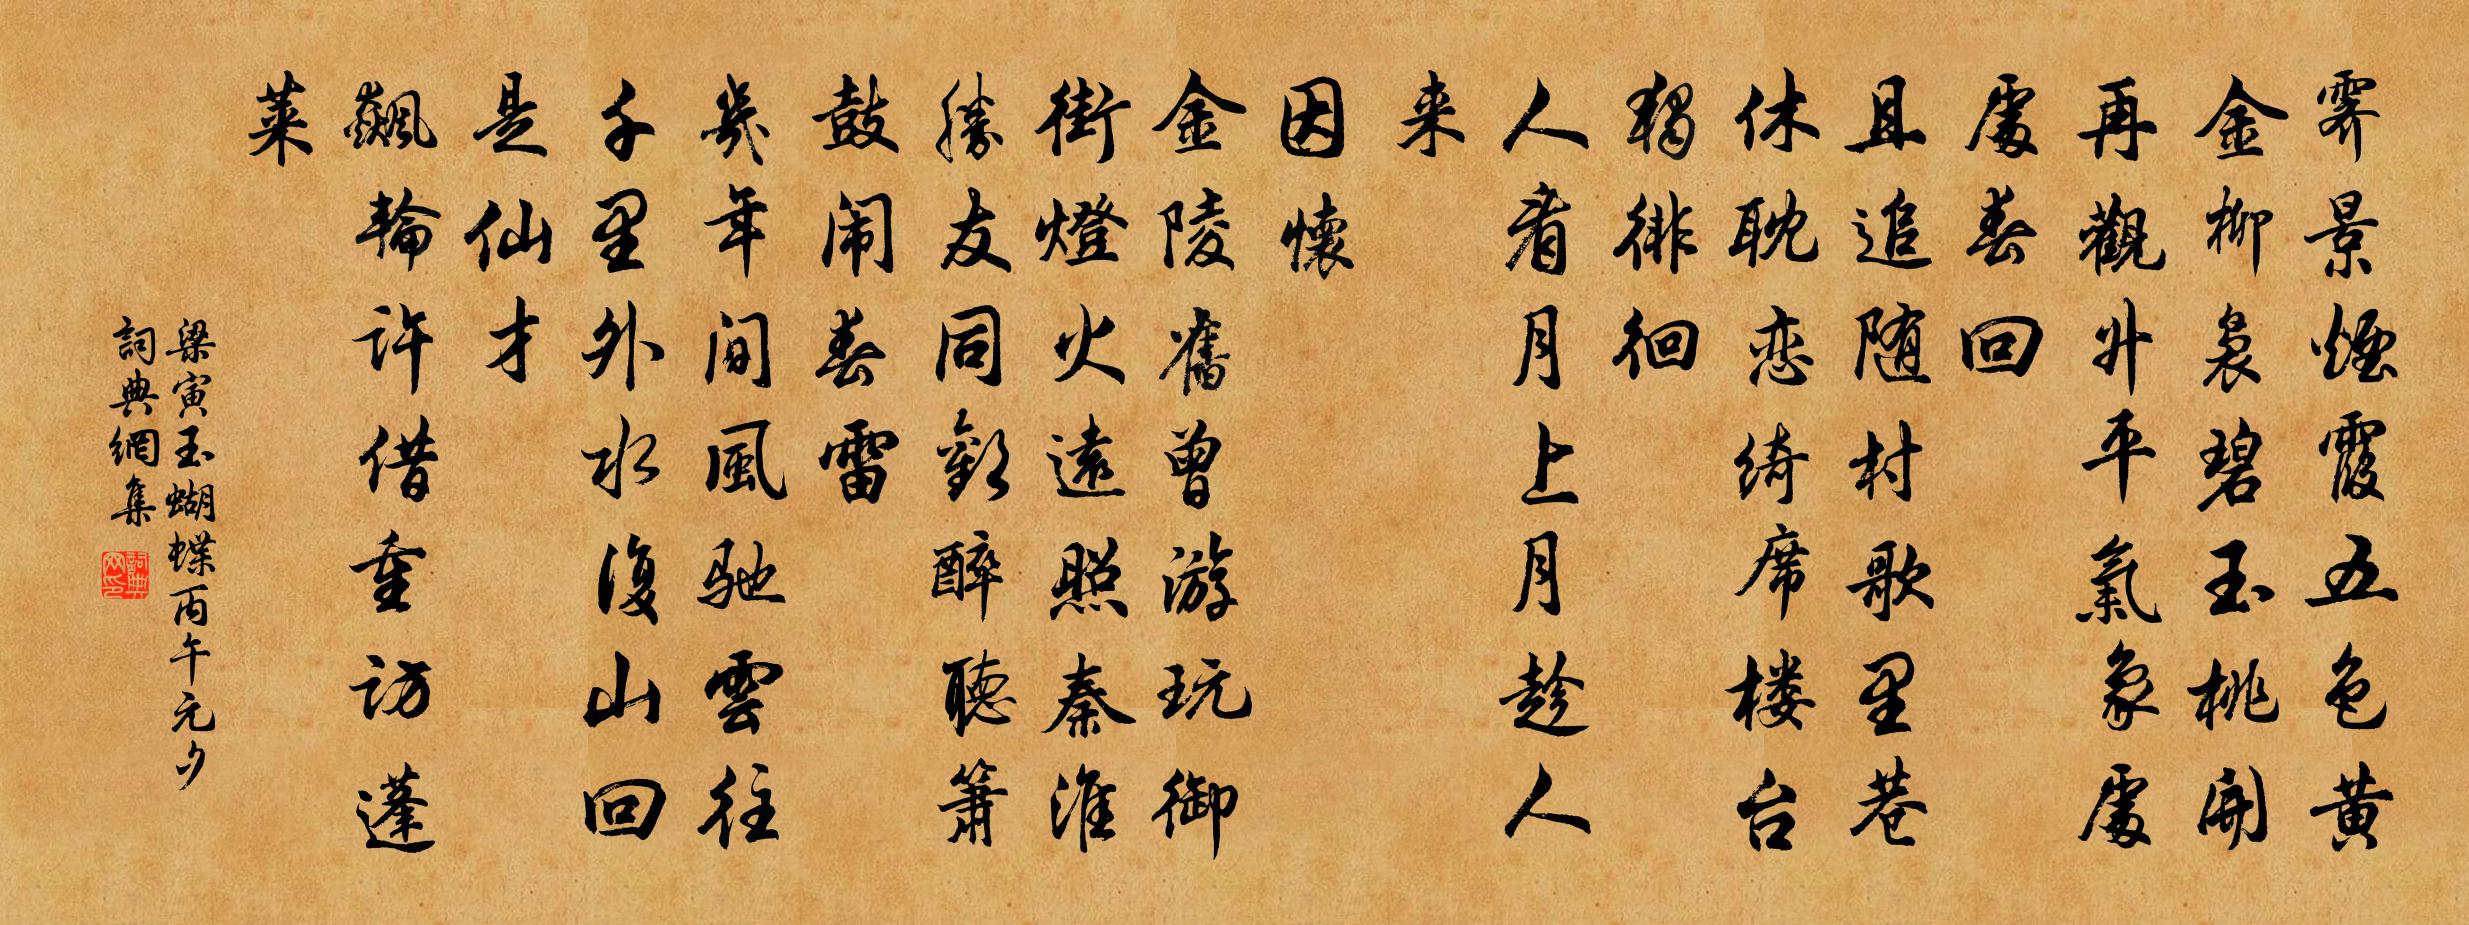 霽景煙霞五色黄
金柳裊碧玉桃開
再觀升平氣象處
處春回
且追随村歌里巷
休耽恋綺席楼台
獨徘徊
人看月上月趁人
来
因懷
金陵舊曾游玩御
街燈火遠照秦淮
勝友同歡醉聽簫
鼓闹春雷
幾年間風馳雲往
千里外水復山回
是仙才
飆輪許借重访蓬
莱
梁寅玉蝴蝶丙午元夕
詞典網集
詞典网印